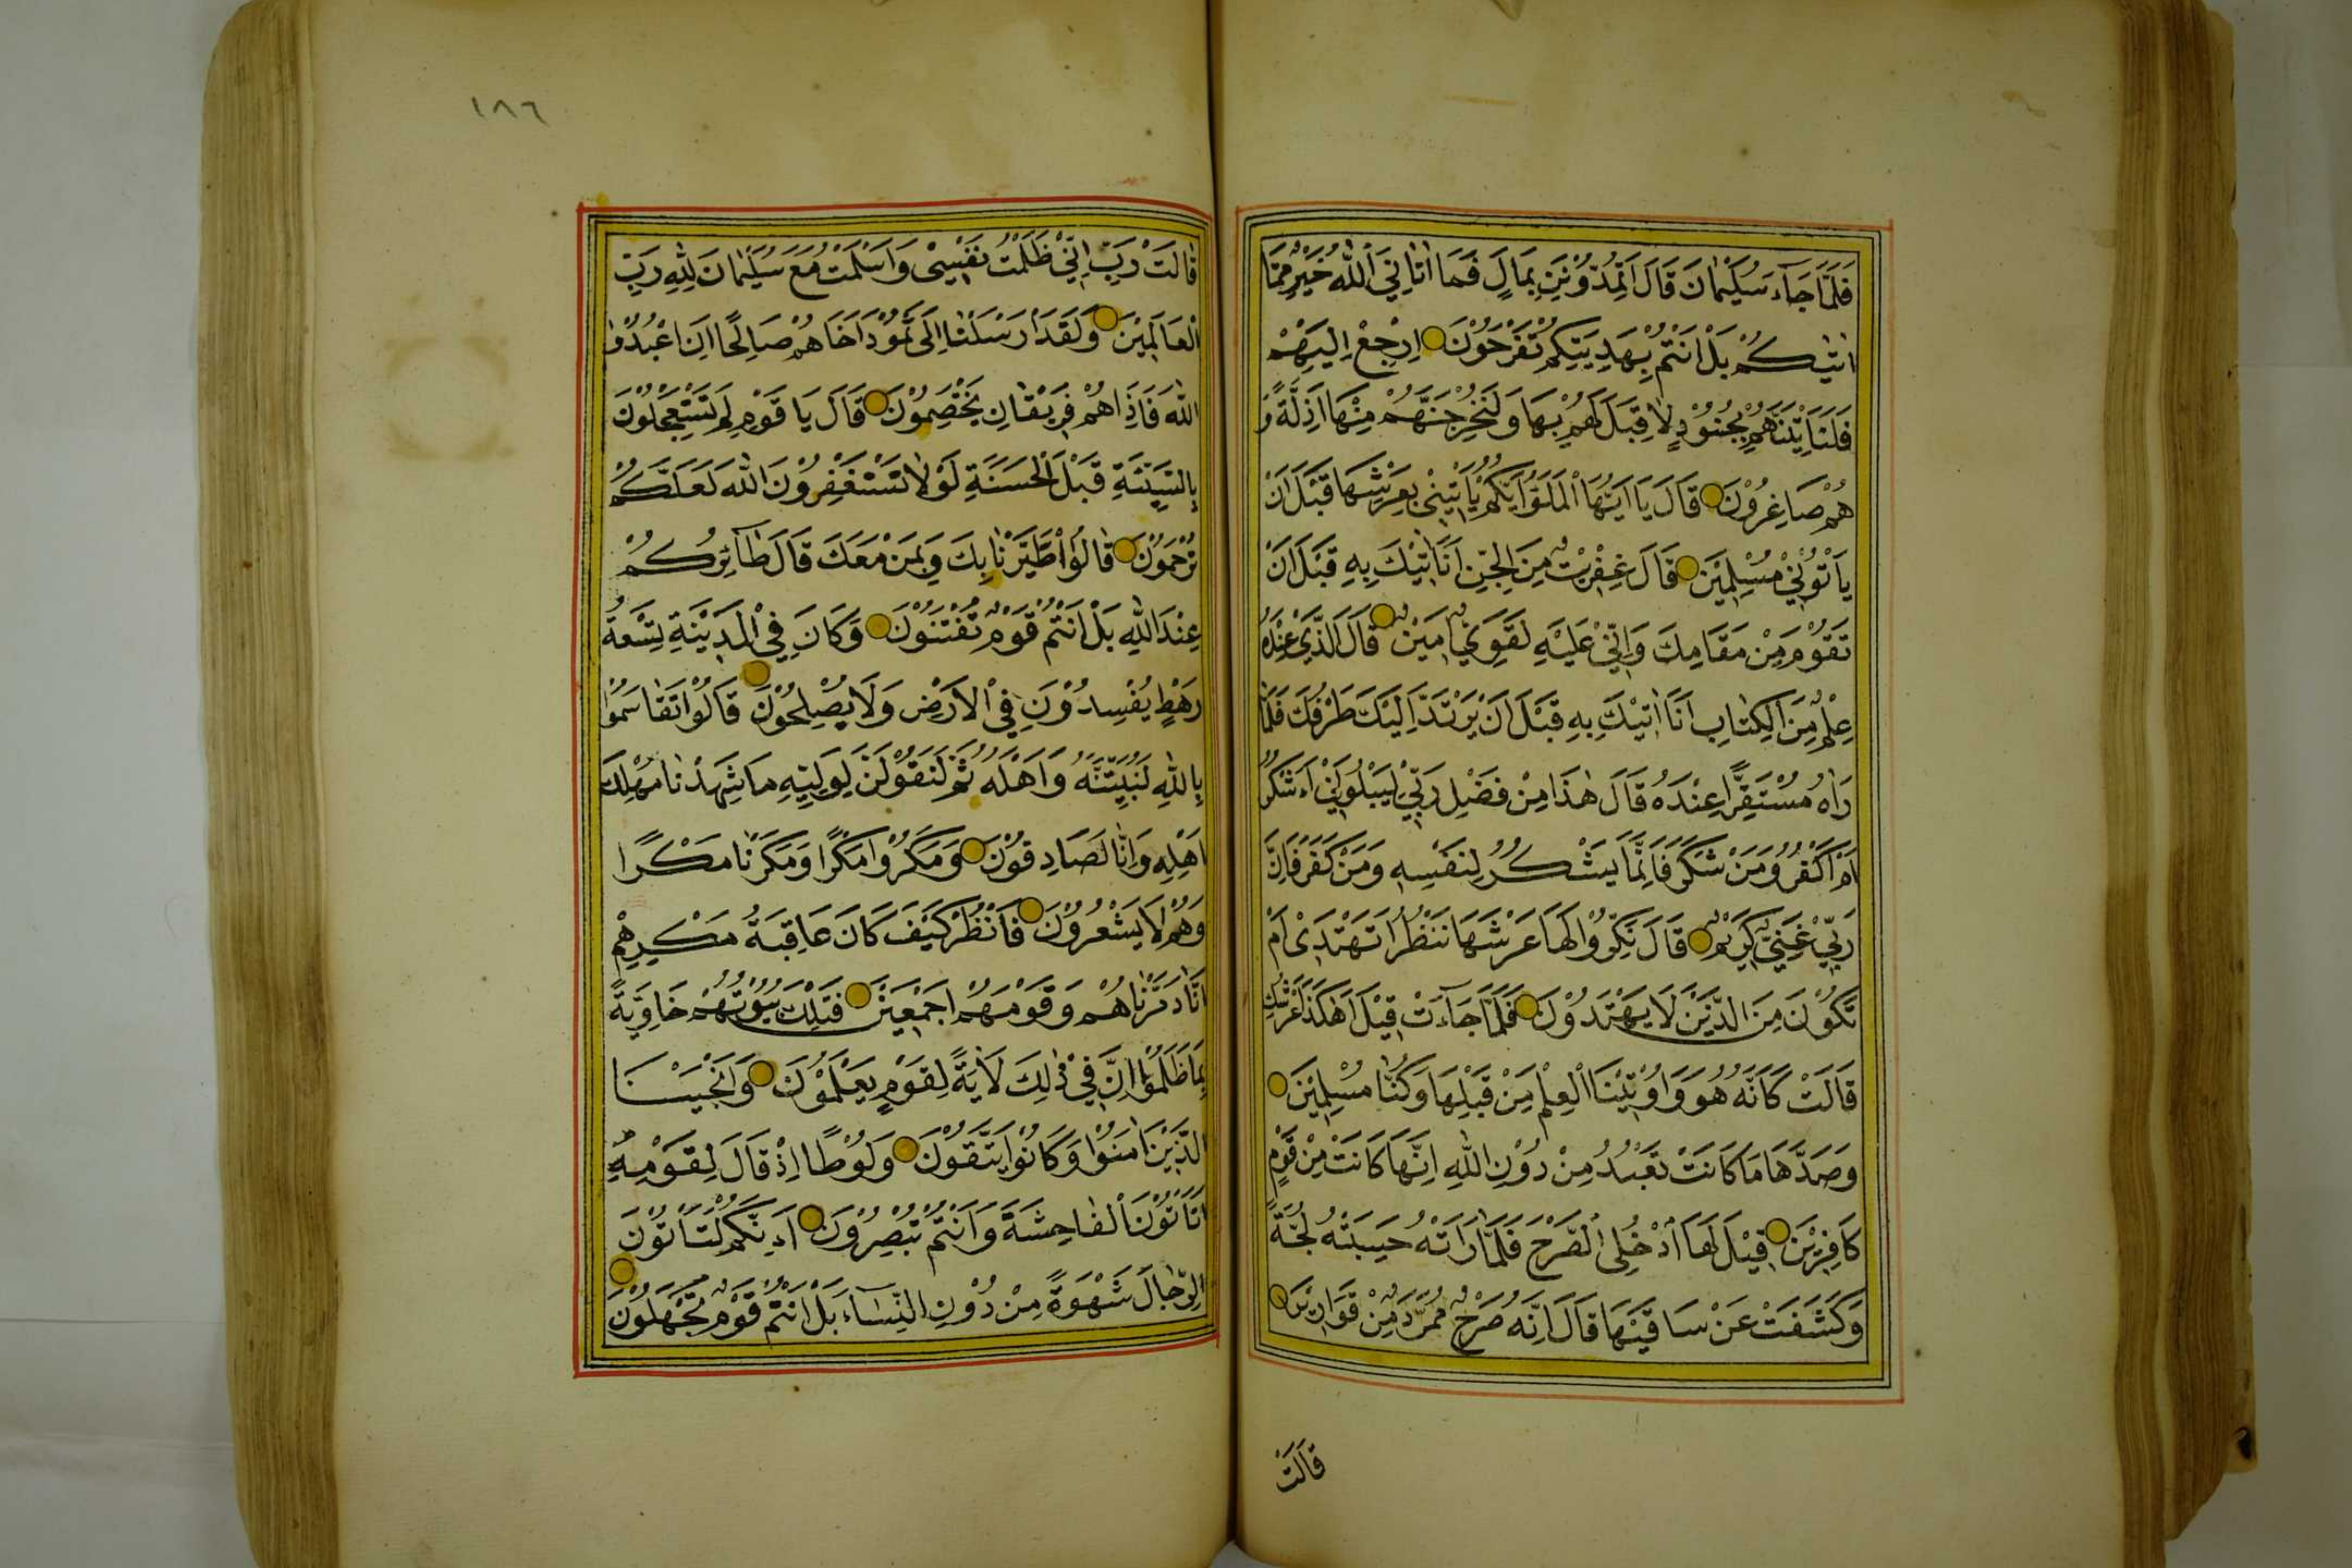 فَلَمَّا جَآءَ سُلَيْمٰانَ قَالَ اَتُمِدُّوْنَنِ بِمَالٍ فَمَا اٰتٰانِيَ اللّٰهُ خَيْرٌ مِمَّا
اٰتٰيكُمْ بَلْ اَنْتُمْ بِهَدِيَّتِكُمْ تَفْرَحُوْنَ اِرْجِعْ اِلَيْهِمْ
فَلَنَاْتِيَنَّهُمْ بِجُنُوْدٍ لَا قِبَلَ لَهُمْ بِهَا وَلَنُخْرِجَنَّهُمْ مِنْهَا اَذِلَّةً وَ
هُمْ صَاغِرُوْنَ قَالَ يَا اَيُّهَا الْمَلَؤُا اَيُّكُمْ يَاْتِيْنِيْ بِعَرْشِهَا قَبْلَ اَنْ
يَاْتُوْنِيْ مُسْلِمِيْنَ قَالَ عِفْرِيْتٌ مِنَ الْجِنِّ اَنَا اٰتِيْكَ بِهِ قَبْلَ اَنْ
تَقُوْمَ مِنْ مَقَامِكَ وَاِنِّيْ عَلَيْهِ لَقَوِيٌّ اَمِيْنٌ قَالَ الَّذِيْ عِنْدَهُ
عِلْمٌ مِنَ الْكِتٰابِ اَنَا اٰتِيْكَ بِهِ قَبْلَ اَنْ يَرْتَدَّ اِلَيْكَ طَرْفُكَ فَلَمَّا
رَاٰهُ مُسْتَقِرًّا عِنْدَهُ قَالَ هٰذَا مِنْ فَضْلِ رَبِّيْ لِيَبْلُوَنِيْ ءَاَشْكُرُ
اَمْ اَكْفُرُ وَمَنْ شَكَرَ فَاِنَّمَا يَشْكُرُ لِنَفْسِهِ وَمَنْ كَفَرَ فَاِنَّ
رَبِّيْ غَنِيٌّ كَرِيْمٌ قَالَ نَكِّرُوْا لَهَا عَرْشَهَا نَنْظُرْ اَتَهْتَدِيْ اَمْ
تَكُوْنُ مِنَ الَّذِيْنَ لَا يَهْتَدُوْنَ فَلَمَّا جَآءَتْ قِيْلَ اَهٰكَذَا عَرْشُكِ
قَالَتْ كَاَنَّهُ هُوَ وَاُوْتِيْنَا الْعِلْمَ مِنْ قَبْلِهَا وَكُنَّا مُسْلِمِيْنَ
وَصَدَّهَا مَا كَانَتْ تَعْبُدُ مِنْ دُوْنِ اللّٰهِ اِنَّهَا كَانَتْ مِنْ قَوْمٍ
كَافِرِيْنَ قِيْلَ لَهَا ادْخُلِي الصَّرْحَ فَلَمَّا رَاَتْهُ حَسِبَتْهُ لُجَّةً
وَكَشَفَتْ عَنْ سَاقَيْهَا قَالَ اِنَّهُ صَرْحٌ مُمَرَّدٌ مِنْ قَوَارِيْرَ
قَالَتْ
١٨٦
قَالَتْ رَبِّ اِنِّيْ ظَلَمْتُ نَفْسِيْ وَاَسْلَمْتُ مَعَ سُلَيْمٰانَ لِلّٰهِ رَبِّ
الْعَالَمِيْنَ وَلَقَدْ اَرْسَلْنَا اِلَى ثَمُوْدَ اَخَاهُمْ صَالِحًا اَنِ اعْبُدُوا
اللّٰهَ فَاِذَا هُمْ فَرِيْقَانِ يَخْتَصِمُوْنَ قَالَ يَا قَوْمِ لِمَ تَسْتَعْجِلُوْنَ
بِالسَّيِّئَةِ قَبْلَ الْحَسَنَةِ لَوْلَا تَسْتَغْفِرُوْنَ اللّٰهَ لَعَلَّكُمْ
تُرْحَمُوْنَ قَالُوا اطَّيَّرْنَا بِكَ وَبِمَنْ مَعَكَ قَالَ طَآئِرُكُمْ
عِنْدَ اللّٰهِ بَلْ اَنْتُمْ قَوْمٌ تُفْتَنُوْنَ وَكَانَ فِي الْمَدِيْنَةِ تِسْعَةُ
رَهْطٍ يُفْسِدُوْنَ فِي الْاَرْضِ وَلَا يُصْلِحُوْنَ قَالُوْا تَقَاسَمُوْا
بِاللّٰهِ لَنُبَيِّتَنَّهُ وَاَهْلَهُ ثُمَّ لَنَقُوْلَنَّ لِوَلِيِّهِ مَا شَهِدْنَا مَهْلِكَ
اَهْلِهِ وَاِنَّا لَصَادِقُوْنَ وَمَكَرُوْا مَكْرًا وَمَكَرْنَا مَكْرًا
وَهُمْ لَا يَشْعُرُوْنَ فَانْظُرْ كَيْفَ كَانَ عَاقِبَةُ مَكْرِهِمْ
اَنَّا دَمَّرْنَاهُمْ وَقَوْمَهُمْ اَجْمَعِيْنَ فَتِلْكَ بُيُوْتُهُمْ خَاوِيَةً
بِمَا ظَلَمُوْا اِنَّ فِيْ ذٰلِكَ لَاٰيَةً لِقَوْمٍ يَعْلَمُوْنَ وَاَنْجَيْنَا
الَّذِيْنَ اٰمَنُوْا وَكَانُوْا يَتَّقُوْنَ وَلُوْطًا اِذْ قَالَ لِقَوْمِهِ
اَتَاْتُوْنَ الْفَاحِشَةَ وَاَنْتُمْ تُبْصِرُوْنَ اَءِنَّكُمْ لَتَاْتُوْنَ
الرِّجَالَ شَهْوَةً مِنْ دُوْنِ النِّسَاءِ بَلْ اَنْتُمْ قَوْمٌ تَجْهَلُوْنَ